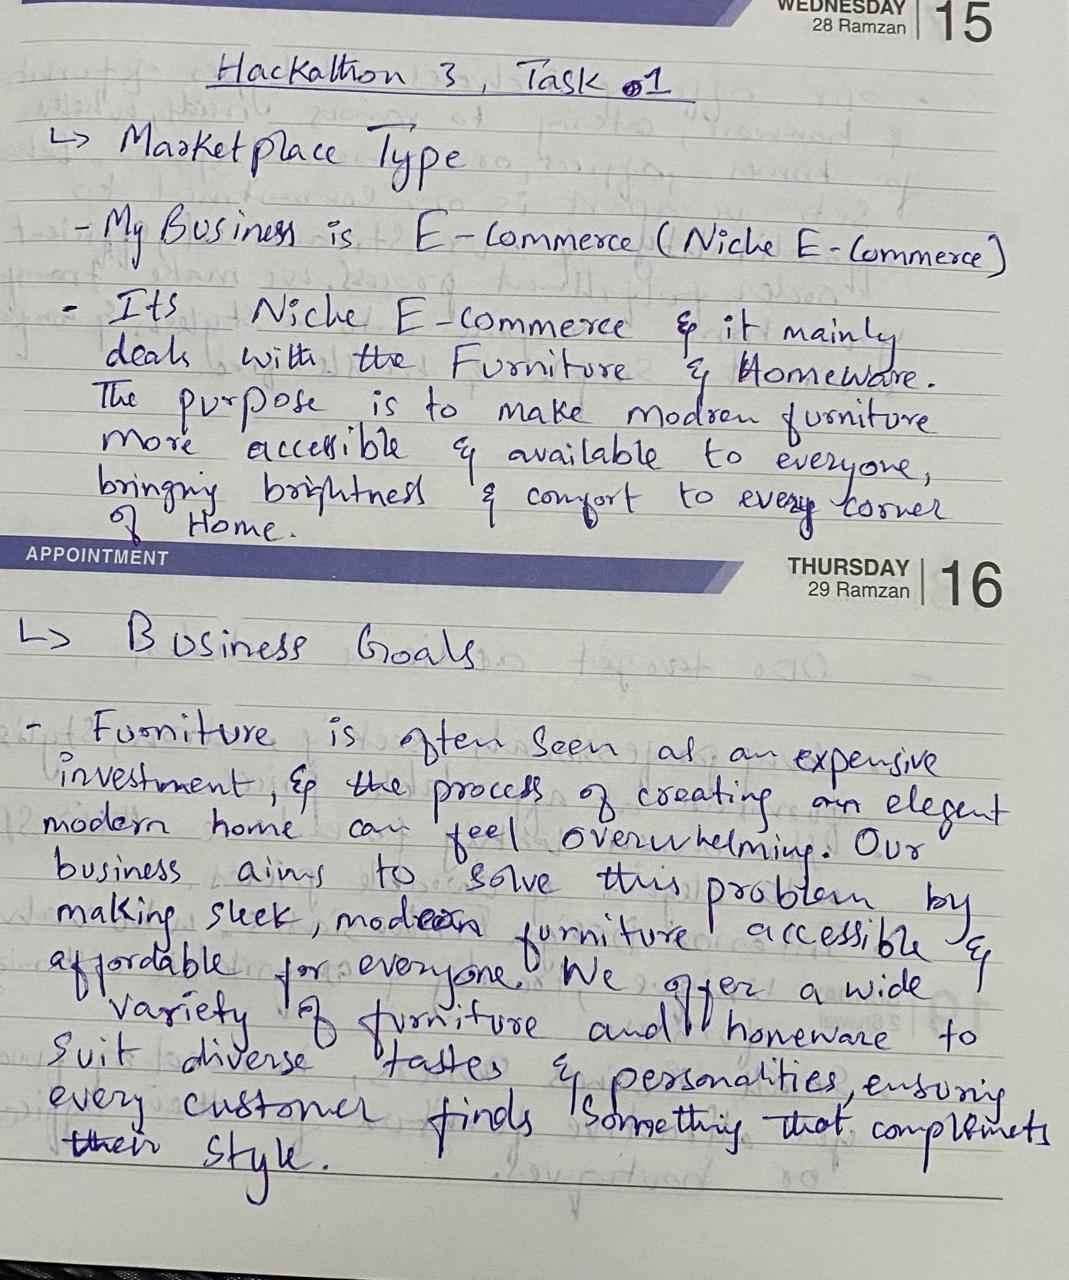 WEDNESDAY
28 Ramzan
15
Hackathon 3, Task 01
↳ Marketplace Type
- My Business is E-Commerce (Niche E-Commerce)
- Its Niche E-commerce & it mainly
deals with the Furniture & Homeware.
The purpose is to make modren furniture
more accessible & available to everyone,
bringing brightness & comfort to every corner
of Home.
APPOINTMENT
THURSDAY
29 Ramzan
16
↳ Business Goals
- Furniture is often seen as an expensive
investment, & the process of creating an elegent
modern home can feel overwhelming. Our
business aims to solve this problem by
making sleek, modern furniture accessible &
affordable for everyone. We offer a wide
variety of furniture and homeware to
suit diverse tastes & personalities, ensuring
every customer finds something that complemets
their style.